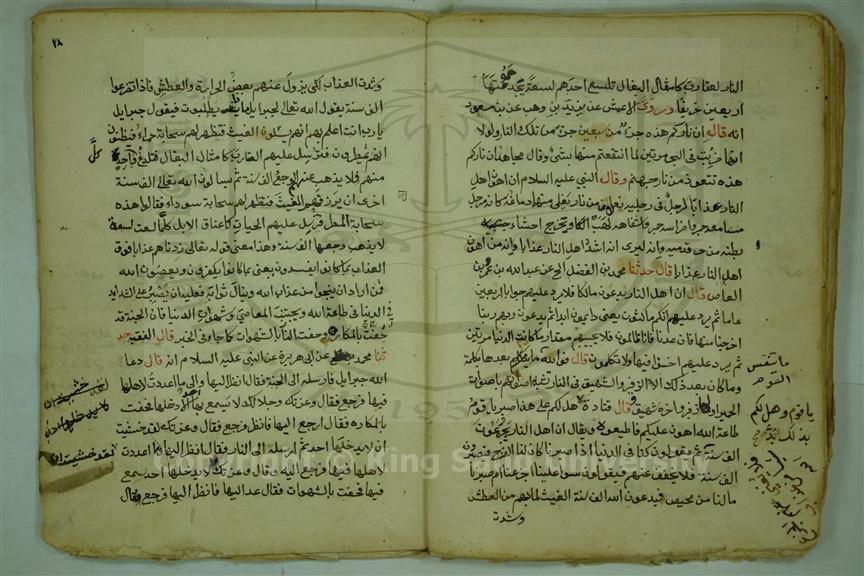 النار لعقارب كامثال البغال تلسع احدهم لسعة يجد حمتها
اربعين خريفا وروى الاعمش عن يزيد بن وهب عن بن مسعود
انه قال ان ناركم هذه جزء من سبعين جزء من تلك النار ولولا
انها ضربت في البحر مرتين لما انتفعتم منها بشئ وقال مجاهد ان ناركم
هذه تتعوذ من نار جهنم وقال النبي عليه السلام ان اهون اهل
النار عذابا لرجل في رجليه نعلين من نار يغلي منهما دماغه كانه مرجل
مسامعه جمر واضراسه جمر واشفاره لهب النار وتخرج احشاء
بطنه من قدميه وانه ليرى انه اشد اهل النار عذابا وانه من اهون
اهل النار عذابا قال حدثنا محمد بن الفضل عن عبد الله بن عمرو بن
العاص قال ان اهل النار يدعون مالكا فلا يرد عليهم جوابا اربعين
عاما ثم يرد عليهم انكم ماكثون يعني دائمون ابدا ثم يدعون ربهم ربنا
اخرجنا منها فان عدنا فانا ظالمون فلا يجيبهم مقدار ما كانت الدنيا مرتين
ثم يرد عليهم اخسؤا فيها ولا تكلمون قال فوالله ما بعدها كلمة
وما كان بعد ذلك الا الزفير والشهيق في النار تشبه اصواتهم باصوات
الحمير اوله زفير واخره شهيق وقال قتادة هل لكم على هذا صبر يا قوم
طاعة الله اهون عليكم فاطيعوه ويقال ان اهل النار يجزعون
الف سنة فيقولون كنا في الدنيا اذا صبرنا كان لنا الفرج فيصبرون
الف سنة فلا يخفف عنهم فيقولون سواء علينا اجزعنا ام صبرنا
مالنا من محيص فيدعون الله الف سنة الغيث لما بهم من العطش
وشدة
ما يتنفس
القوم
يا قوم وهل لكم
٢٨
وشدت العذاب لكي يزول عنهم بعض الحرارة والعطش فاذا تضرعوا
الف سنة يقول الله تعالى لجبرايل اي شئ يطلبون فيقول جبرايل
يا رب انت اعلم بهم انهم يسئلون الغيث فتظهر لهم سحابة حمراء فيظنون
انهم يمطرون فترسل عليهم العقارب كامثال البغال فتلدغ واحدا
منهم فلا يذهب عنه الوجع الف سنة ثم يسالون الله تعالى الف سنة
اخرى ان يرزقهم الغيث فتظهر لهم سحابة سوداء فقالوا هذه
سحابة المطر فترسل عليهم الحيات كاعناق الابل كلما لسعت لسعة
لا يذهب وجعها الف سنة وهذا معنى قوله تعالى زدناهم عذابا فوق
العذاب بما كانوا يفسدون يعني بما كانوا يكفرون ويعصون الله
فمن اراد ان ينجوا من عذاب الله وينال ثوابه فعليه ان يصبر على الشدايد
في الدنيا في طاعة الله ويجتنب المعاصي وشهوات الدنيا فان الجنة قد
حفت بالمكاره وحفت النار بالشهوات كما جاء في الخبر قال الفقيه حد
ثنا محمد عن ابي هريرة عن النبي عليه السلام انه قال دعا
الله جبرايل فارسله الى الجنة فقال انظر اليها والى ما اعددت لاهلها
فيها فرجع فقال وعزتك وجلالك لا يسمع بها احد الا دخلها فحفت
بالمكاره فقال ارجع اليها فانظر فرجع فقال وعزتك لقد خشيت
ان لا يدخلها احد ثم ارسله الى النار فقال انظر اليها ما اعددت
لاهلها فيها فرجع اليه وقال وعزتك لا يدخلها احد سمع
فيها فحفت بالشهوات فقال عد اليها فانظر اليها فرجع فقال
كل
لقد خشيت ان
Copyright © King Saud University
195